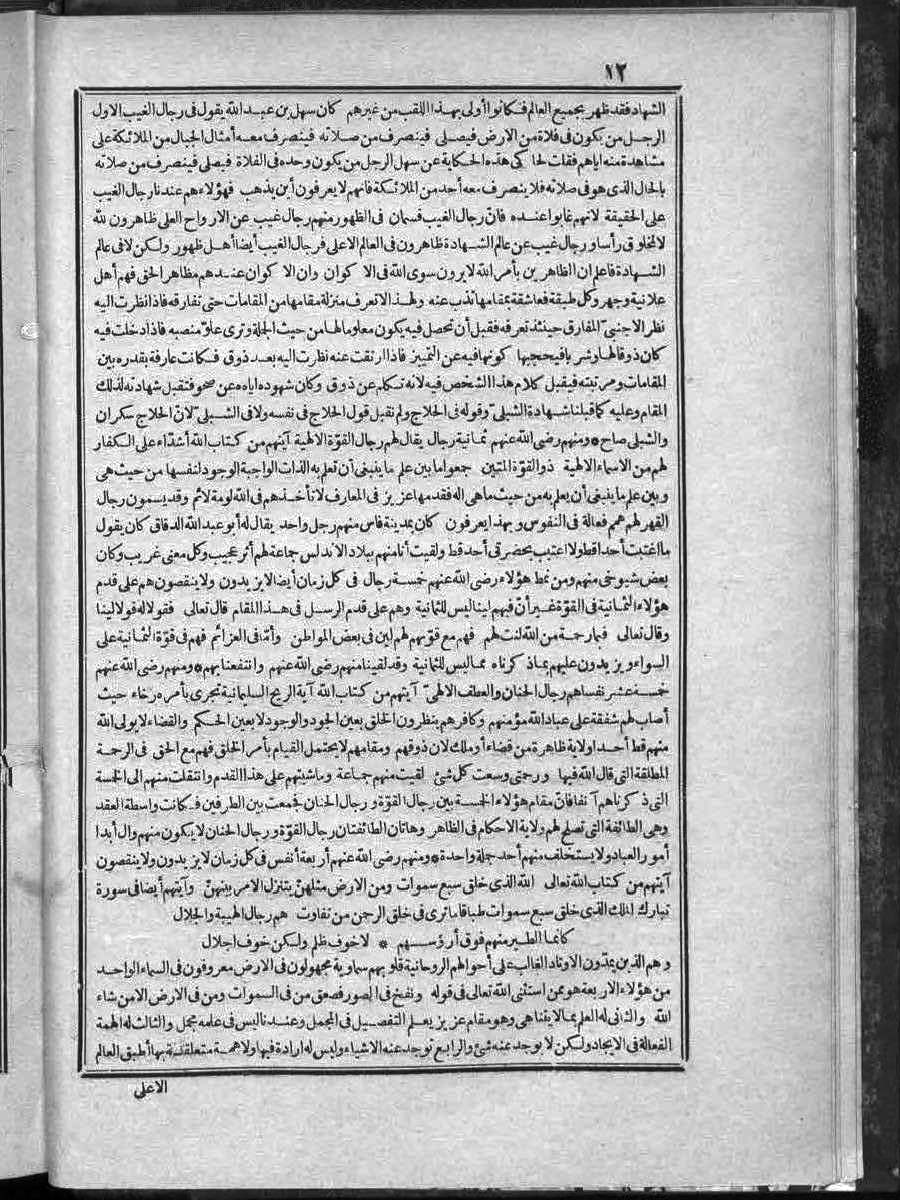 ١٢
الشهاد فقد ظهر بجميع العالم فكانوا أولى بهذا اللقب من غيرهم كان سهل بن عبد الله يقول فى رجال الغيب الاول
الرجل من يكون فى فلاة من الارض فيصلى فينصرف من صلاته فينصرف معه أمثال الجبال من الملائكة على
مشاهدة منه اياهم فقلت لحاكى هذه الحكاية عن سهل الرجل من يكون وحده فى الفلاة فيصلى فينصرف من صلاته
بالحال الذى هو فى صلاته فلا ينصرف معه أحد من الملائكة فانهم لا يعرفون أين يذهب فهؤلاء هم عندنا رجال الغيب
على الحقيقة لانهم غابوا عنده فان رجال الغيب قسمان فى الظهور منهم رجال غيب عن الارواح العلى ظاهرون لله
لا لمخلوق رأسا ورجال غيب عن عالم الشهادة ظاهرون فى العالم الاعلى فرجال الغيب أيضا أهل ظهور ولكن لا فى عالم
الشهادة فاعلم ان الظاهرين بأمر الله لا يرون سوى الله فى الاكوان وان الاكوان عندهم مظاهر الحق فهم أهل
علانية وجهر وكل طبقة فعاشقة بمقامها تذب عنه ولهذا لا تعرف منزلة مقامها من المقامات حتى تفارقه فاذا نظرت اليه
نظر الاجنبىّ المفارق حينئذ تعرفه فقبل أن تحصل فيه يكون معلوما لها من حيث الجملة وترى علوّ منصبه فاذا دخلت فيه
كان ذوقا لها وشربا فيحجبها كونها فيه عن التمييز فاذا ارتقت عنه نظرت اليه بعد ذوق فكانت عارفة بقدره بين
المقامات ومرتبته فيقبل كلام هذا الشخص فيه لانه تكلم عن ذوق وكان شهوده اياه عن صحو فتقبل شهادته لذلك
المقام وعليه كما قبلنا شهادة الشبلىّ وقوله فى الحلاج ولم نقبل قول الحلاج فى نفسه ولا فى الشبلىّ لانّ الحلاج سكران
والشبلى صاح * ومنهم رضى الله عنهم ثمانية رجال يقال لهم رجال القوّة الالهية آيتهم من كتاب الله أشدّاء على الكفار
لهم من الاسماء الالهية ذو القوّة المتين جمعوا ما بين علم ما ينبغى أن تعلم به الذات الواجبة الوجود لنفسها من حيث هى
وبين علم ما ينبغى أن يعلم به من حيث ما هى اله فقدمها عزيز فى المعارف لا تأخذهم فى الله لومة لائم وقد يسمون رجال
القهر لهم همم فعالة فى النفوس وبهذا يعرفون كان بمدينة فاس منهم رجل واحد يقال له أبو عبد الله الدقاق كان يقول
ما اغتبت أحدا قط ولا اغتيب بحضرتى أحد قط ولقيت أنا منهم ببلاد الاندلس جماعة لهم أثر عجيب وكل معنى غريب وكان
بعض شيوخى منهم ومن نمط هؤلاء رضى الله عنهم خمسة رجال فى كل زمان أيضا لا يزيدون ولا ينقصون هم على قدم
هؤلاء الثمانية فى القوّة غير أنّ فيهم لينا ليس للثمانية وهم على قدم الرسل فى هذا المقام قال تعالى فقولا له قولا لينا
وقال تعالى فبما رحمة من الله لنت لهم فهم مع قوّتهم لهم لين فى بعض المواطن وأمّا فى العزائم فهم فى قوّة الثمانية على
السواء ويزيدون عليهم بما ذكرناه مما ليس للثمانية وقد لقينا منهم رضى الله عنهم وانتفعنا بهم * ومنهم رضى الله عنهم
خمسة عشر نفسا هم رجال الحنان والعطف الالهىّ آيتهم من كتاب الله آية الريح السليمانية تجرى بأمره رخاء حيث
أصاب لهم شفقة على عباد الله مؤمنهم وكافرهم ينظرون الخلق بعين الجود والوجود لا بعين الحكم والقضاء لا يولى الله
منهم قط أحدا ولاية ظاهرة من قضاء أو ملك لان ذوقهم ومقامهم لا يحتمل القيام بأمر الخلق فهم مع الحق فى الرحمة
المطلقة التى قال الله فيها ورحمتى وسعت كل شئ لقيت منهم جماعة وماشيتهم على هذا القدم وانتقلت منهم الى الخمسة
التى ذكرناهم آنفا فانّ مقام هؤلاء الخمسة بين رجال القوّة ورجال الحنان فجمعت بين الطرفين فكانت واسطة العقد
وهى الطائفة التى تصلح لهم ولاية الاحكام فى الظاهر وهاتان الطائفتان رجال القوّة ورجال الحنان لا يكون منهم وال أبدا
أمور العباد ولا يستخلف منهم أحد جملة واحدة * ومنهم رضى الله عنهم أربعة أنفس فى كل زمان لا يزيدون ولا ينقصون
آيتهم من كتاب الله تعالى الله الذى خلق سبع سموات ومن الارض مثلهنّ يتنزل الامر بينهنّ وآيتهم أيضا فى سورة
تبارك الملك الذى خلق سبع سموات طباقا ما ترى فى خلق الرحمن من تفاوت هم رجال الهيبة والجلال
كأنما الطير منهم فوق أرؤسهم * لا خوف ظلم ولكن خوف اجلال
وهم الذين يمدّون الاوتاد الغالب على أحوالهم الروحانية قلوبهم سماوية مجهولون فى الارض معروفون فى السماء الواحد
من هؤلاء الاربعة هو ممن استثنى الله تعالى فى قوله ونفخ فى الصور فصعق من فى السموات ومن فى الارض الا من شاء
الله والثانى له العلم بما لا يتناهى وهو مقام عزيز يعلم التفصيل فى المجمل وعندنا ليس فى علمه مجمل والثالث له الهمة
الفعالة فى الايجاد ولكن لا يوجد عنه شئ والرابع توجد عنه الاشياء وليس له ارادة فيها ولا همة متعلقة بها أطبق العالم
الاعلى